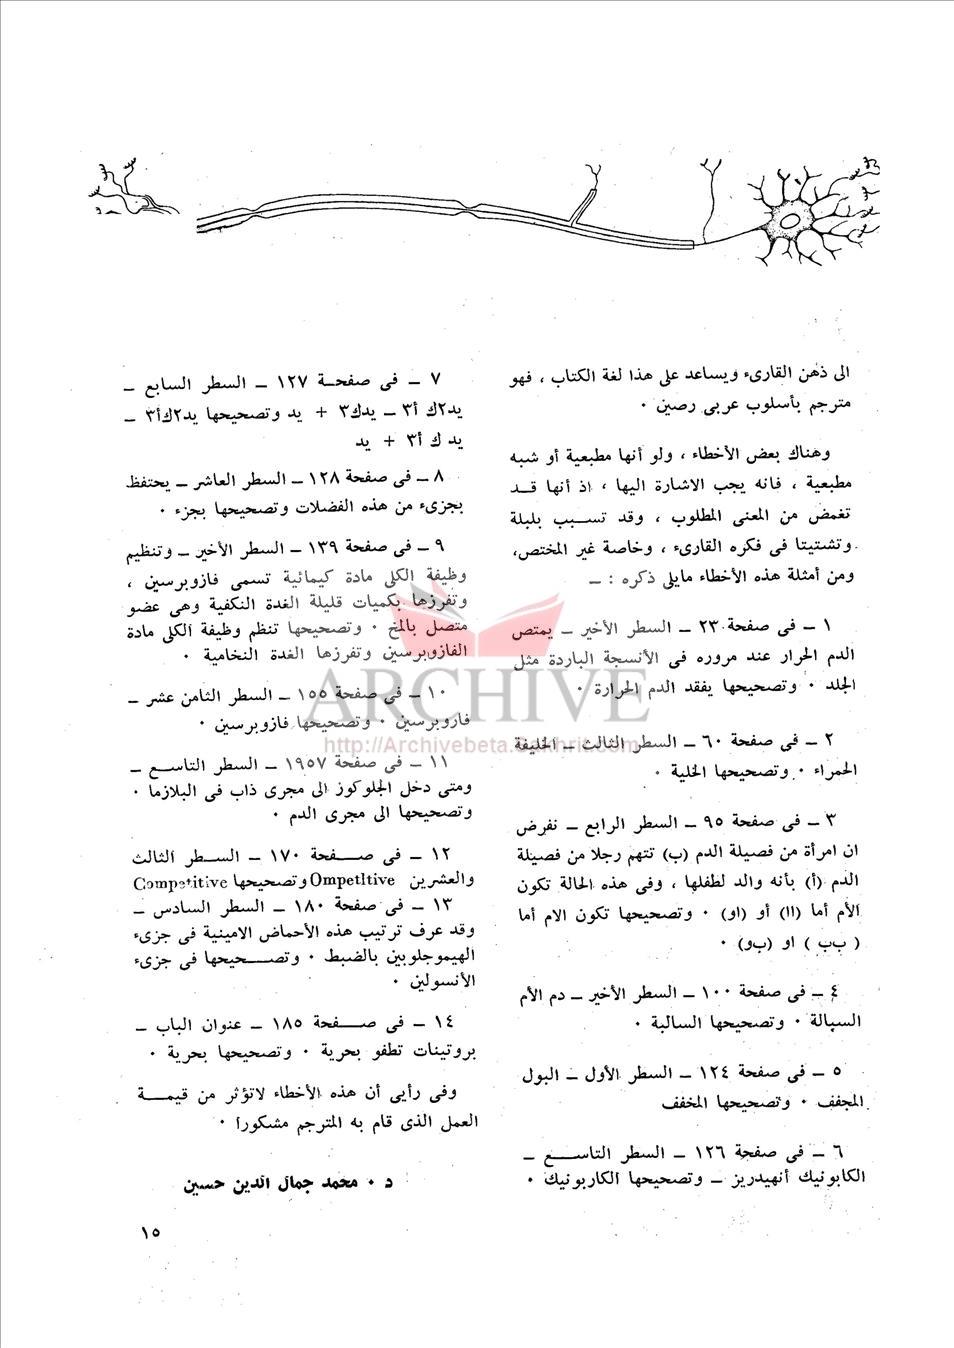 الى ذهن القارىء ويساعد على هذا لغة الكتاب ، فهو
مترجم بأسلوب عربى رصين ٠
وهناك بعض الأخطاء ، ولو أنها مطبعية أو شبه
مطبعية ، فانه يجب الاشارة اليها ، اذ أنها قد
تغمض من المعنى المطلوب ، وقد تسبب بلبلة
وتشتيتا فى فكره القارىء ، وخاصة غير المختص،
ومن أمثلة هذه الأخطاء مايلى ذكره : ــ
١ ــ فى صفحة ٢٣ ــ السطر الأخير ــ يمتص
الدم الحرار عند مروره فى الأنسجة الباردة مثل
الجلد ٠ وتصحيحها يفقد الدم الحرارة ٠
٢ ــ فى صفحة ٦٠ ــ السطر الثالث ــ الخليفة
الحمراء ٠ وتصحيحها الخلية ٠
٣ ــ فى صفحة ٩٥ ــ السطر الرابع ــ نفرض
ان امرأة من فصيلة الدم (ب) تتهم رجلا من فصيلة
الدم (أ) بأنه والد لطفلها ، وفى هذه الحالة تكون
الأم أما (اا) أو (او) ٠ وتصحيحها تكون الام أما
( بب ) او (بو) ٠
٤ ــ فى صفحة ١٠٠ ــ السطر الأخير ــ دم الأم
السيالة ٠ وتصحيحها السالبة ٠
٥ ــ فى صفحة ١٢٤ ــ السطر الأول ــ البول
المجفف ٠ وتصحيحها المخفف
٦ ــ فى صفحة ١٢٦ ــ السطر التاسع ــ
الكابونيك أنهيدريز ــ وتصحيحها الكاربونيك ٠
٧ ــ فى صفحة ١٢٧ ــ السطر السابع ــ
يد٢ك أ٣ ــ يدك٣ + يد وتصحيحها يد٢ك أ٣ ــ
يد ك أ٣ + يد
٨ ــ فى صفحة ١٢٨ ــ السطر العاشر ــ يحتفظ
بجزىء من هذه الفضلات وتصحيحها بجزء ٠
٩ ــ فى صفحة ١٣٩ ــ السطر الأخير ــ وتنظيم
وظيفة الكلى مادة كيمائية تسمى فازوبرسين ،
وتفرزها بكميات قليلة الغدة النكفية وهى عضو
متصل بالمخ ٠ وتصحيحها تنظم وظيفة الكلى مادة
الفازوبرسين وتفرزها الغدة النخامية ٠
١٠ ــ فى صفحة ١٥٥ ــ السطر الثامن عشر ــ
فاروبرسين ٠ وتصحيحها فازوبرسين ٠
١١ ــ فى صفحة ١٩٥٧ ــ السطر التاسع ــ
ومتى دخل الجلوكوز الى مجرى ذاب فى البلازما ٠
وتصحيحها الى مجرى الدم ٠
١٢ ــ فى صفحة ١٧٠ ــ السطر الثالث
والعشرين Ompetltive وتصحيحها Competitive
١٣ ــ فى صفحة ١٨٠ ــ السطر السادس ــ
وقد عرف ترتيب هذه الأحماض الامينية فى جزىء
الهيموجلوبين بالضبط ٠ وتصحيحها فى جزىء
الأنسولين ٠
١٤ ــ فى صفحة ١٨٥ ــ عنوان الباب ــ
بروتينات تطفو بحرية ٠ وتصحيحها بحرية ٠
وفى رأيى أن هذه الأخطاء لاتؤثر من قيمة
العمل الذى قام به المترجم مشكورا ٠
د ٠ محمد جمال الدين حسين
١٥
ARCHIVE
http://Archivebeta.Sakhrit.com